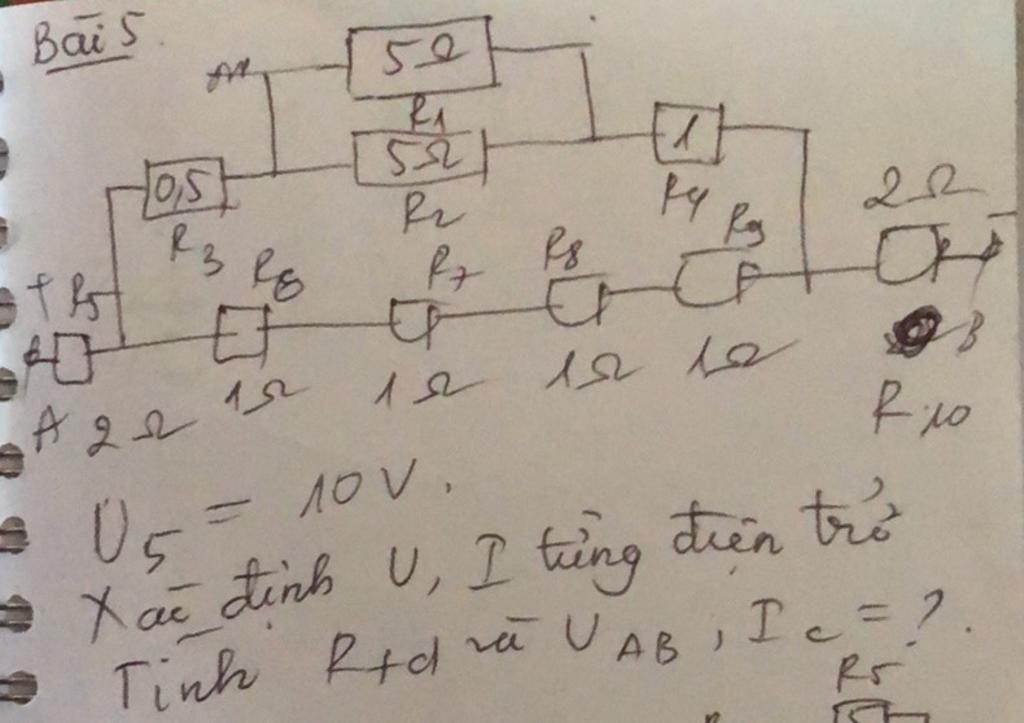 Bài 5
5Ω
R1
5Ω
R2
0,5
R3
1
R4
2Ω
+ R5
R6
R7
R8
R9
-
A 2Ω
1Ω
1Ω
1Ω
1Ω
B
R10
U5 = 10V.
Xác định U, I từng điện trở
Tính Rtđ và UAB, Ic = ?.
R5